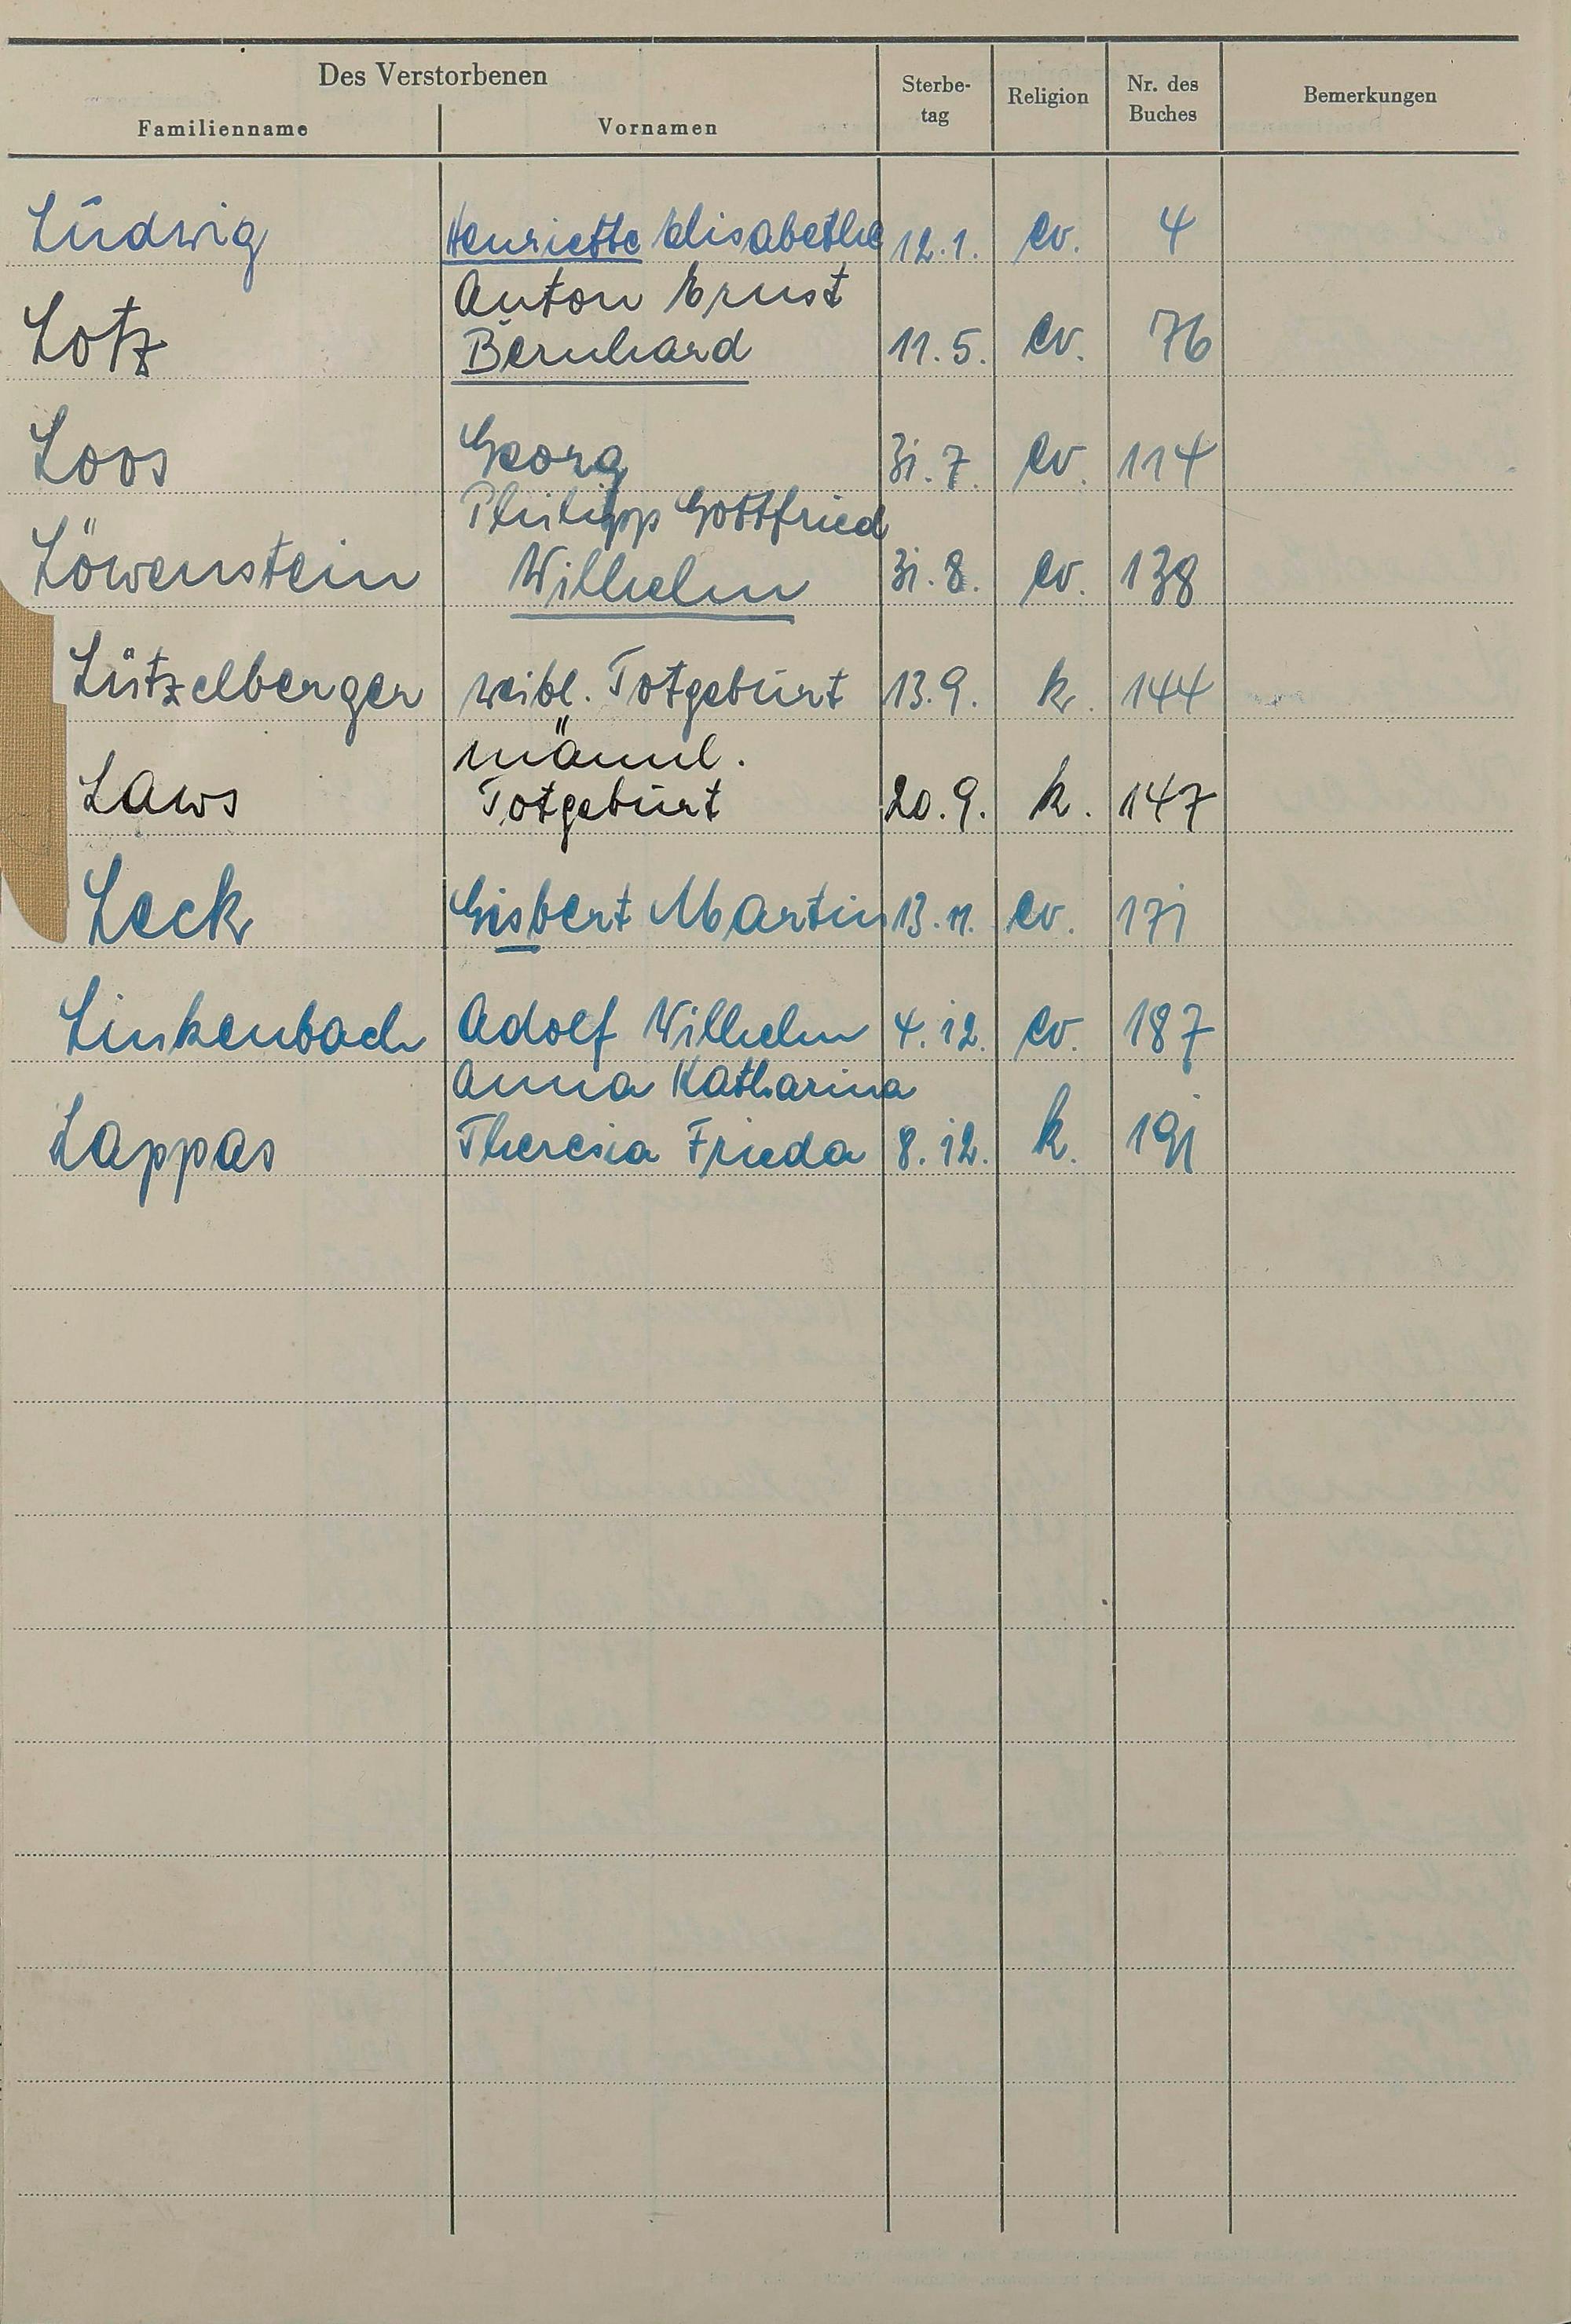 Des Verstorbenen
Familienname Vornamen Sterbe-tag Religion Nr. des Buches Bemerkungen
Ludwig Henriette Elisabethe 12.1. ev. 4
Anton Ernst
Lotz Bernhard 11.5. ev. 76
Loos Georg 31.7. ev. 114
Philipp Gottfried
Löwenstein Wilhelm 31.8. ev. 138
Lützelberger weibl. Totgeburt 13.9. k. 144
männl.
Laws Totgeburt 20.9. k. 147
Leck Gisbert Martin 13.11. ev. 171
Linkenbach Adolf Wilhelm 4.12. ev. 187
Anna Katharina
Lappas Theresia Frieda 8.12. k. 191